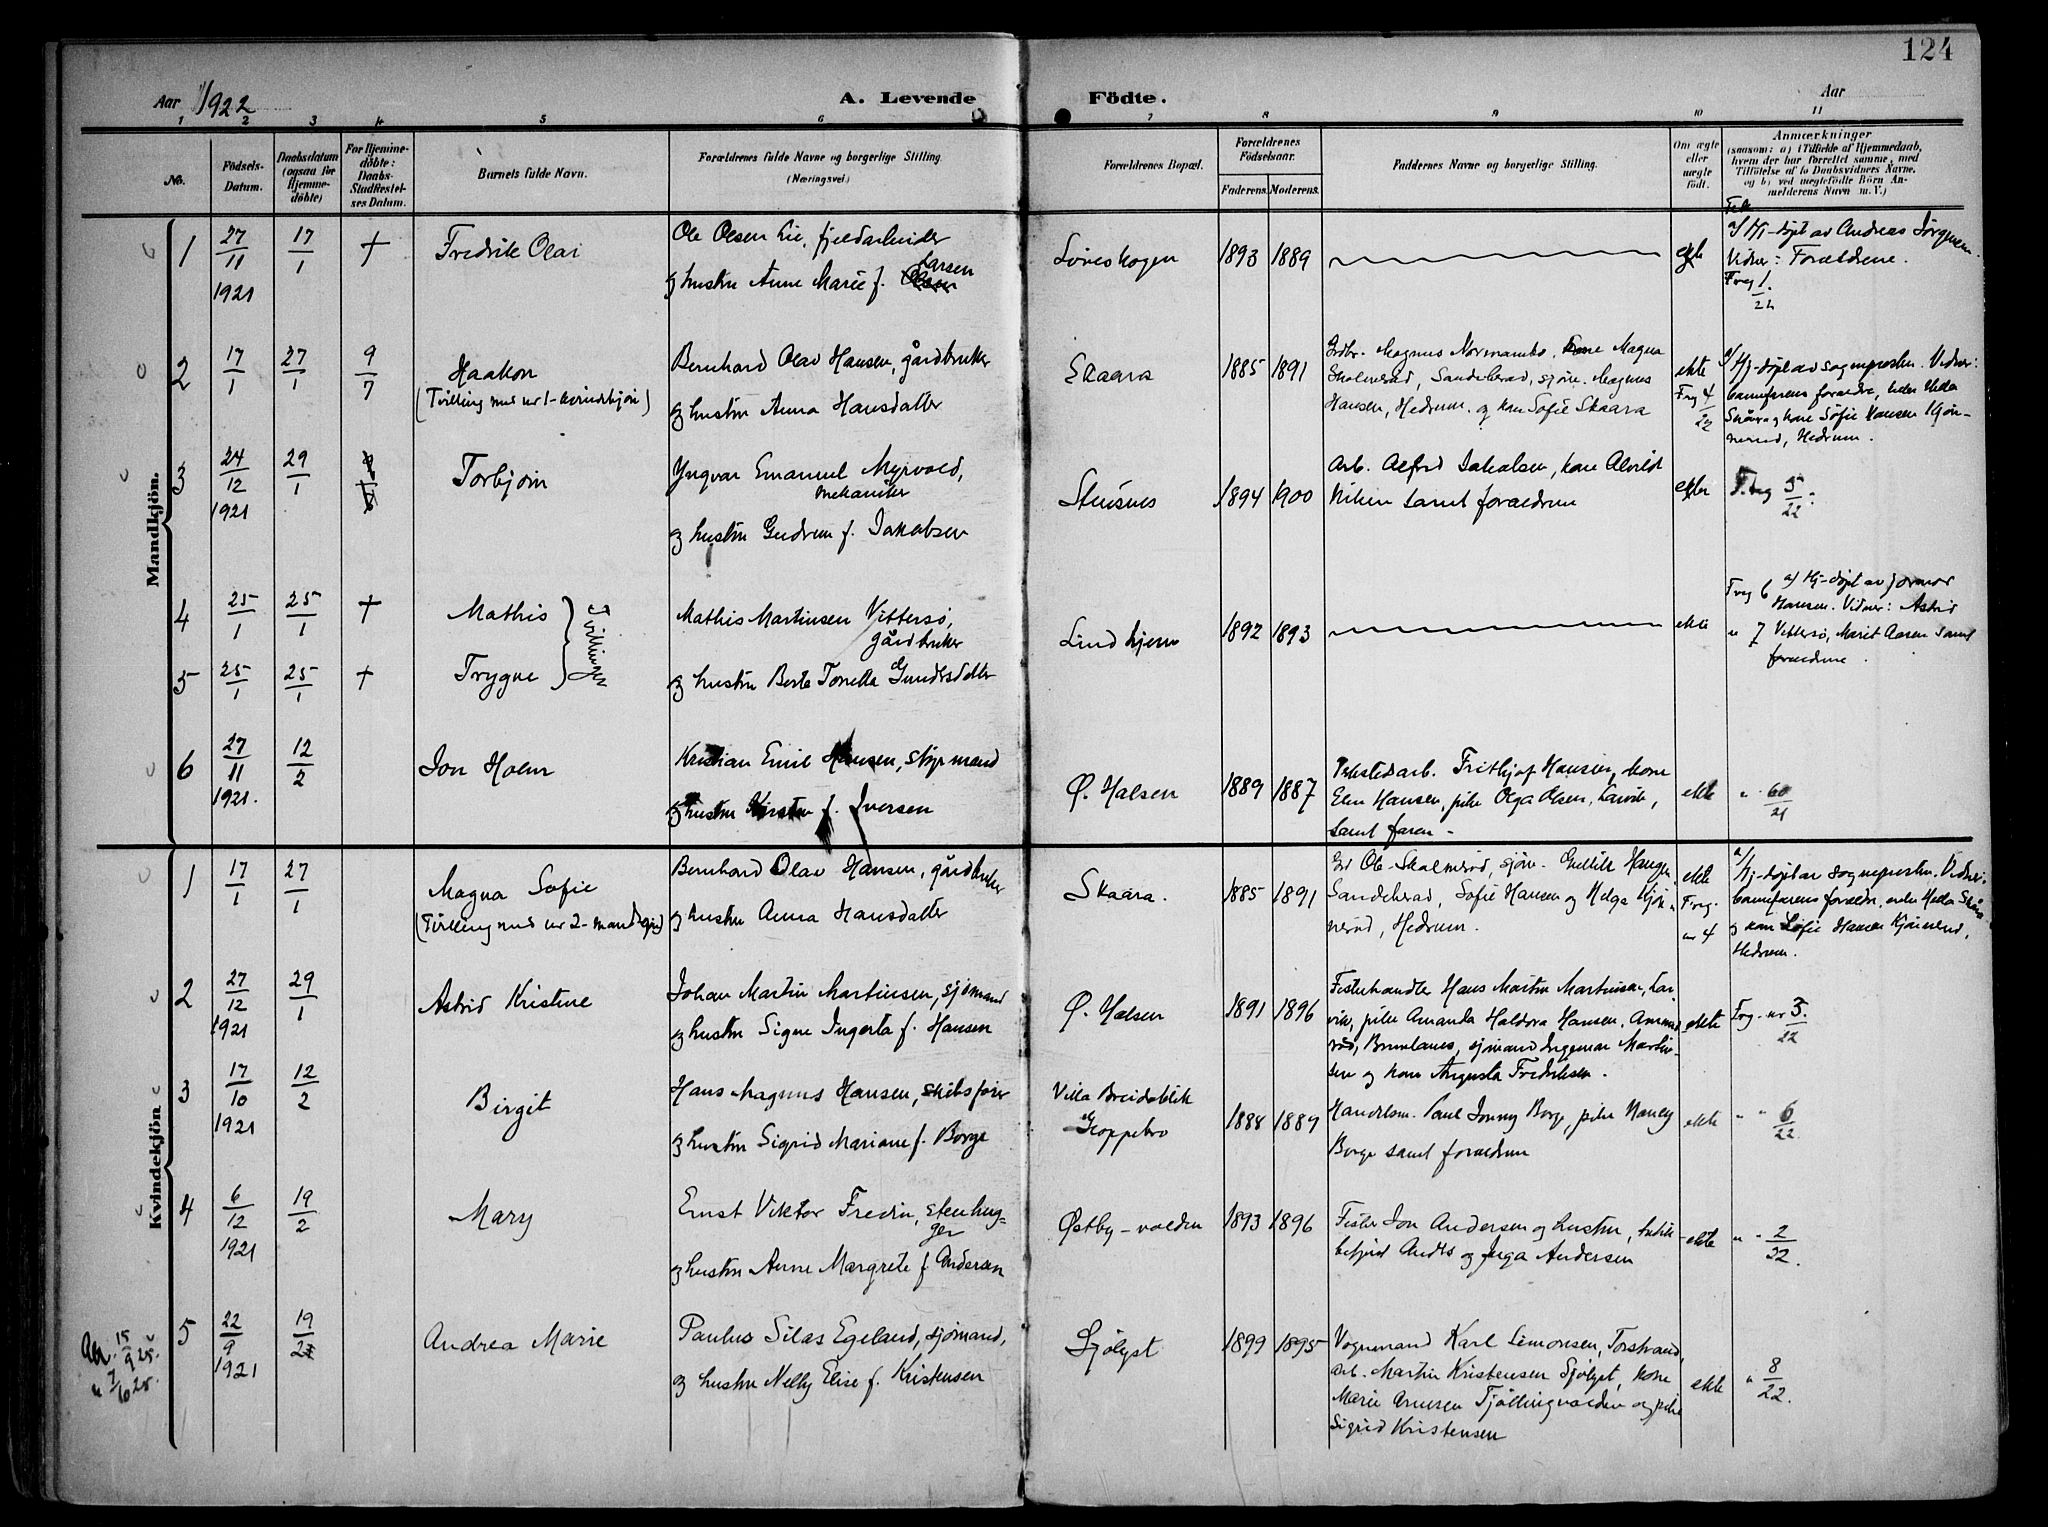 124
Aar 1922
A. Levende
Födte.
Aar
1 2 3 4 5 6 7 8 9 10 11
No.
Födsels-
Datum.
Daabsdatum
(ogsaa for
Hjemme-
döbte)
For Hjemme-
döbte:
Daabs-
Stadfæstel-
ses Datum.
Barnets fulde Navn.
Forældrenes fulde Navne og borgerlige Stilling.
(Næringsvei.)
Forældrenes Bopæl.
Forældrenes
Födselsaar.
Faderens. Moderens.
Faddernes Navne og borgerlige Stilling.
Om ægte
eller
uægte
födt.
Anmærkninger
(saasom: a) i Tilfælde af Hjemmedaab,
hvem der har forrettet samme, med
Tilföielse af to Daabsvidners Navne,
og b) ved uægtefödte Börn An-
melderens Navn m. V.)
Mandkjön.
1 27/11 1921 17/1 † Fredrik Olai
Ole Olsen Lie, fjeldarbeider
og hustru Anne Marie f. Larsen
Löveskogen 1893 1889 ekte
a/ Hj-döpt av Andreas Jörgensen.
Vidner: Forældrene.
Freg 1/22
2 17/1 27/1 9/7 Haakon
(Tvilling med nr 1 - kvindekjön)
Bernhard Olav Hansen, gårdbruker
og hustru Anna Hansdatter
Skaara 1885 1891
Magnus Normambo, kone Magna
Skolmeröd, Sandeherad, sjöm. Magnus
Hansen, Hedrum. og kone Sofie Skaara
ekte
Freg 4/22
a/ Hj-döpt av sogneprosten. Vidner:
barnefarens forældre, enken Helda
Skåra og kone Sofie Hansen Kjön-
neröd, Hedrum.
3 24/12 1921 29/1 Torbjörn
Yngvar Emanuel Myrvold,
mekaniker
og hustru Gudrun f. Jakobsen
Stusnes 1894 1900
Arb. Alfred Jakobsen, kone Alvild
Nilsen samt forældrene
ekte
Freg 5/22.
4 25/1 25/1 † Mathis
5 25/1 25/1 † Trygve
Tvillinger
Mathis Martinsen Vittersö,
gårdbruker
og hustru Berta Torella Gundersdatter
Lindhjem 1892 1893 ekte
Freg 6 a/ Hj-döpt av jormor
Hansen. Vidner: Astrid
" 7 Vittersö, Marit Aasen samt
forældrene.
6 27/11 1921. 12/2 Jon Holm
Kristian Emil Hansen, styrmand
og hustru Kirsten f. Iversen
Ø. Halsen 1889 1887
Frithjof Hansen, kone
Elen Hansen, pike Olga Olsen, Larvik,
samt faren -
ekte " 60/21
Kvindekjön
1 17/1 27/1 Magna Sofie
(Tvilling med nr 2 - mandkjön)
Bernhard Olav Hansen, gårdbruker
og hustru Anna Hansdatter
Skaara. 1885 1891
Ole Skolmeröd, sjöm. Gullik Haugen,
Sandeherad, Sofie Hansen og Helga Kjön-
neröd, Hedrum.
ekte
Freg.
nr 4
a/ Hj-döpt av sogneprosten. Vidner:
barnefarens forældre, enken Helda Skåra
og kone Sofie Hansen Kjönneröd,
Hedrum.
2 27/12 1921 29/1 Astrid Kristine
Johan Martin Martinsen, sjömand
og hustru Signe Ingerta f. Hansen
Ø. Halsen 1891 1896
Fiskehandler Hans Martin Martinsen, Lar-
vik, pike Amanda Haldora Hansen, Ammen-
röd, Brunlanes, sjömand Ingemar Martin-
sen og kone Augusta Fredriksen.
ekte
Freg. nr 3./22
3 17/10 1921 12/2 Birgit
Hans Magnus Hansen, skibsförer
og hustru Sigrid Mariane f. Borge
Villa Breidablik
Gloppebro 1888 1889
Handelsm. Paul Jonny Borge, pike Nancy
Borge samt forældrene
ekte " " 6/22
4 6/12 1921 19/2 Mary
Ernst Viktor Fredin, stenhug-
ger
og hustru Anne Margrete f. Andersen
Østby-valden 1893 1896
Fisker Jon Andersen og hustru,
Anders og Inga Andersen
ekte " " 2/22.
Aa. 15/9 25.
" 7/6 25.
5 22/9 1921 19/2 Andrea Marie
Paulus Silas Egeland, sjömand,
og hustru Nelly Elise f. Kristensen
Sjölyst 1899 1895
Vognmand Karl Simonsen, Torstrand,
arb. Martin Kristensen Sjölyst, kone
Marie Arnesen Tjöllingvolden og pike
Sigrid Kristensen
ekte " 8/22.